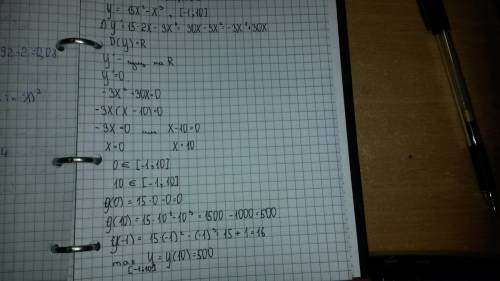 y = 15x² - x³ , [-1; 10]
1) y' = 15·2x - 3x² = 30x - 3x² = -3x² + 30x
D(y) = R
y' - сущ на R
y' = 0
-3x² + 30x = 0
-3x(x - 10) = 0
-3x = 0 или x - 10 = 0
x = 0 x = 10
0 ∈ [-1; 10]
10 ∈ [-1; 10]
y(0) = 15·0 - 0 = 0
y(10) = 15·10² - 10³ = 1500 - 1000 = 500
y(-1) = 15·(-1)² - (-1)³ = 15 + 1 = 16
max y = y(10) = 500
[-1; 10]